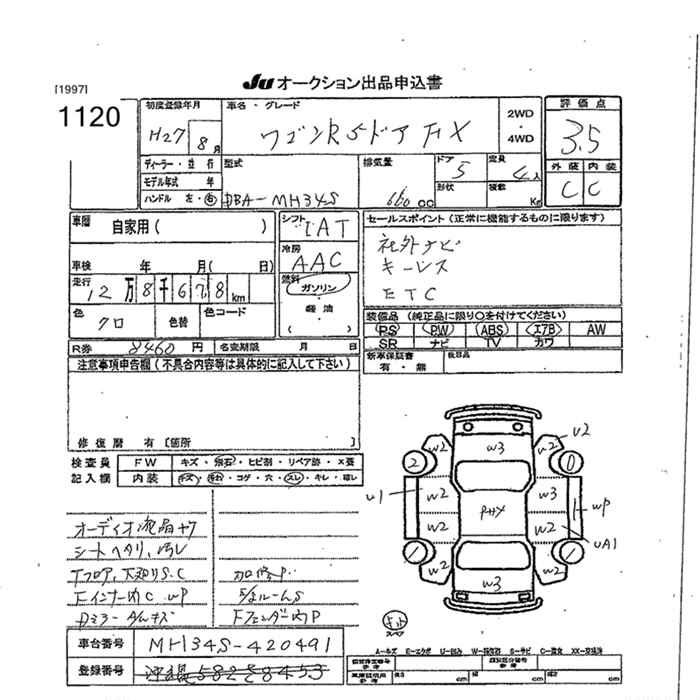 [1997]
JU オークション出品申込書
1120
初度登録年月 H27年 8月
車名・グレード ワゴンR 5ドア FX
2WD ・ 4WD
評価点 3.5
外装 内装
C C
ディーラー・並行
モデル年式 年
ハンドル 左・右
型式 DBA-MH34S
排気量 660 cc
ドア 5
形状
定員 4人
積載 Kg
車歴 自家用 ( )
車検 年 月 ( 日)
走行 12万8千678 km
色 クロ
色替
色コード
シフト IAT
冷房 AAC
燃料 ガソリン ・ 軽油 ・ ( )
セールスポイント (正常に機能するものに限ります)
社外ナビ
キーレス
ETC
装備品 (純正品に限り○を付けてください)
PS PW ABS エアB AW
SR ナビ TV カワ
新車保証書 有・無
後日品
R券 8460円 名変期限 月 日
注意事項申告欄 (不具合内容等は具体的に記入して下さい)
修復歴 有 [箇所 ]
検査員 FW キズ・飛石・ヒビ割・リペア跡・X要
記入欄 内装 キズ・コゲ・穴・スレ・キレ
オーディオ液晶
シートヘタリ、汚レ
Fフロア、
Fインナー内C WP
Dミラー
加修P
Fフェンダー内P
車台番号 MH34S-420491
登録番号 沖縄582
U2
W2 W3 W2
2 0
U1 W2 W3 WP
PHX
W2 W2 UA1
W2 W3 W2
スペア
A-キズ E-エクボ U-凹み W-補修跡 S-サビ C-腐食 XX-交換済